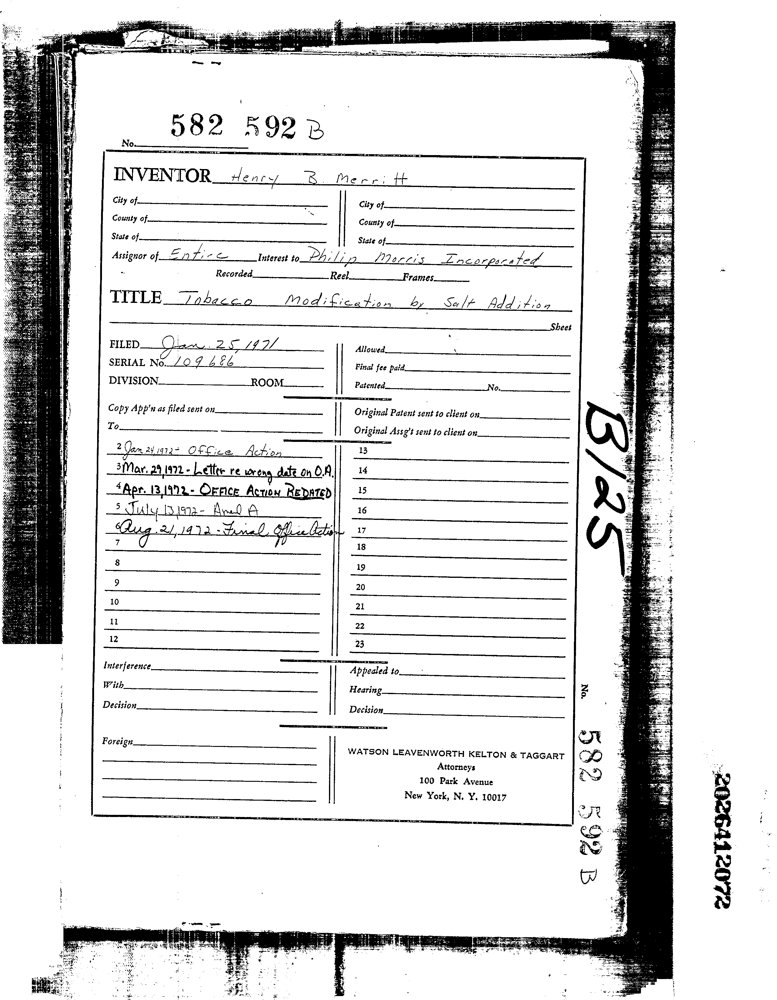 582 592 B
No.
INVENTOR Henry B. Merritt
City of City of
County of County of
State of State of
Assignor of Entire Interest to Philip Morris Incorporated
Recorded Reel Frames
TITLE Tobacco Modification by Salt Addition
Sheet
FILED Jan. 25, 1971
SERIAL No. 109,686
DIVISION ROOM
Allowed
Final fee paid
Patented No.
Copy App'n as filed sent on
To
Original Patent sent to client on
Original Assg't sent to client on
2 Jan 24, 1972 - Office Action
3 Mar. 29, 1972 - Letter re wrong date on O.A.
4 Apr. 13, 1972 - OFFICE ACTION REDATED
5 July 13, 1972 - Amd A
6 Aug. 21, 1972 - Final Office Action
7
8
9
10
11
12
13
14
15
16
17
18
19
20
21
22
23
Interference
With
Decision
Appealed to
Hearing
Decision
Foreign
WATSON LEAVENWORTH KELTON & TAGGART
Attorneys
100 Park Avenue
New York, N. Y. 10017
B/25
No. 582 592 B
2026412072